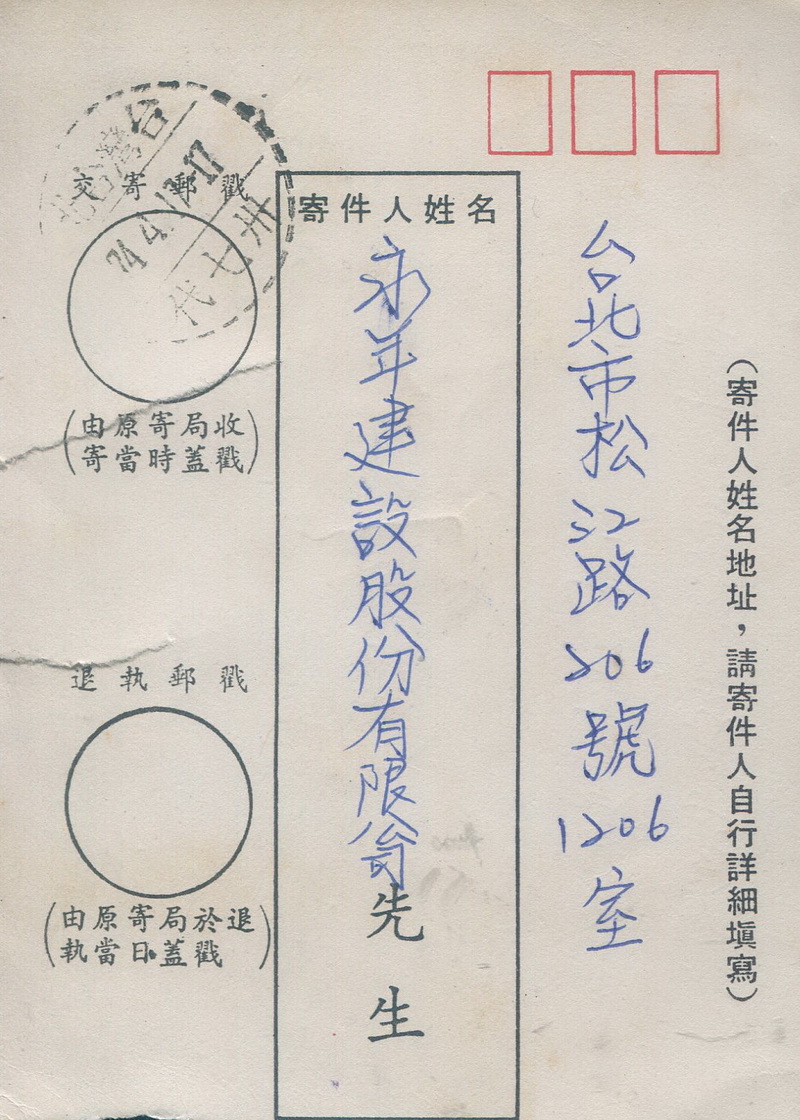 (寄件人姓名地址，請寄件人自行詳細填寫)
台北市松江路206號1206室
寄件人姓名
永年建設股份有限公司
先生
交寄郵戳
(由原寄局收
寄當時蓋戳)
退執郵戳
(由原寄局於退
執當日蓋戳)
台灣台北
74.4.17.17
卅七代